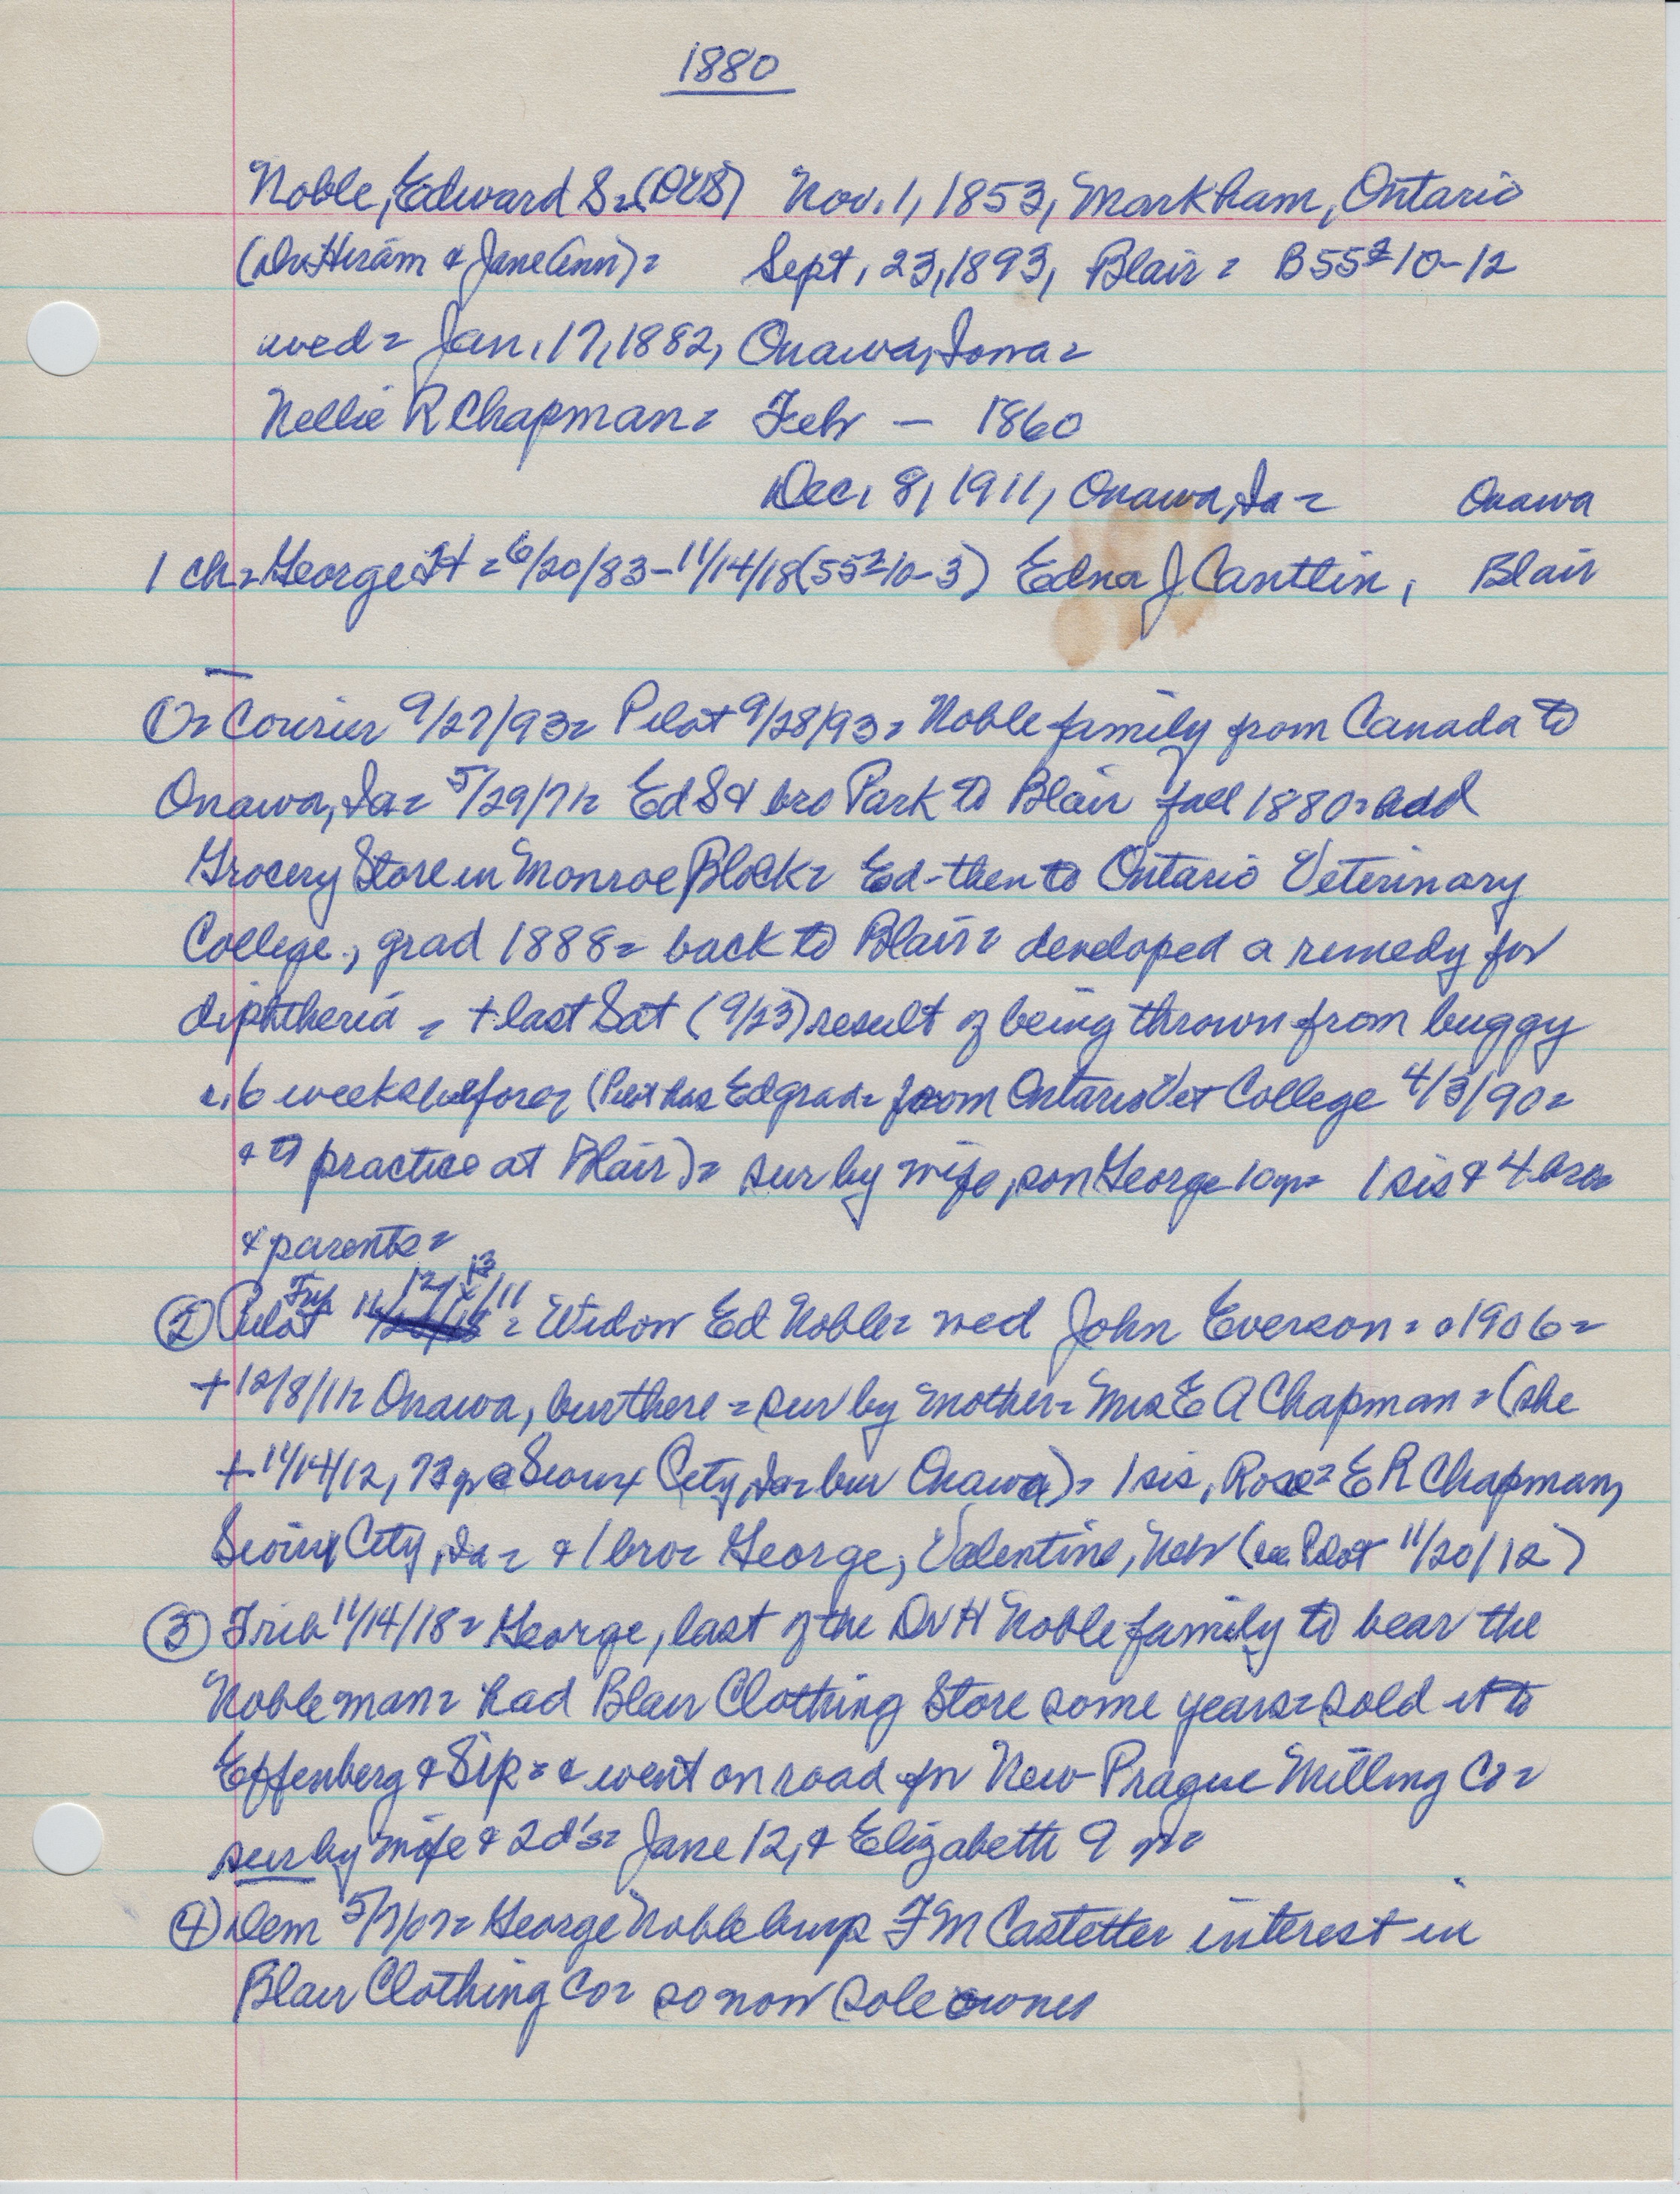 1880
Noble, Edward S= (DVS) Nov. 1, 1853, Markham, Ontario
(Dr Hiram & Jane Ann)= Sept, 23, 1893, Blair = B55²10-12
wed= Jan, 17, 1882, Onawa, Iowa=
Nellie R Chapman= Feb — 1860
Dec, 8, 1911, Onawa, Ia= Onawa
1 ch= George H = 6/20/83-11/14/18 (55²10-3) Edna J Cantlin, Blair
Courier 9/27/93= Pilot 9/28/93= Noble family from Canada to
Onawa, Ia= 5/29/71= Ed S & bro Park to Blair fall 1880=
Grocery Store in Monroe Block= Ed-then to Ontario Veterinary
College, grad 1888= back to Blair= developed a remedy for
diphtheria = + last Sat (9/23) result of being thrown from buggy
6 weeks before= (Pilot has Ed grad= from Ontario Vet College 4/3/90=
& to practice at Blair)= sur by wife, son George 10yr= 1 sis & 4 bros
& parents=
② Pilot 12/13/11 = Widow Ed Noble= wed John Everson= 1906=
+12/8/11= Onawa, bur there = sur by mother= Mrs E A Chapman = (she
+11/14/12, 73 yr @ Sioux City, Ia= bur Onawa)= 1 sis, Rose= E R Chapman,
Sioux City, Ia= & 1 bro= George, Valentine, Neb (see Pilot 11/20/12)
③ Trib 11/14/18= George, last of the Dr H Noble family to bear the
Noble man= had Blair Clothing Store some years= sold it to
Effenberg & Sip= & went on road for New Prague Milling Co=
sur by wife & 2 d's= Jane 12, & Elizabeth 9 yr=
④ Dem 5/7/07= George Noble buys F M Castetter interest in
Blair Clothing Co= so now sole owner